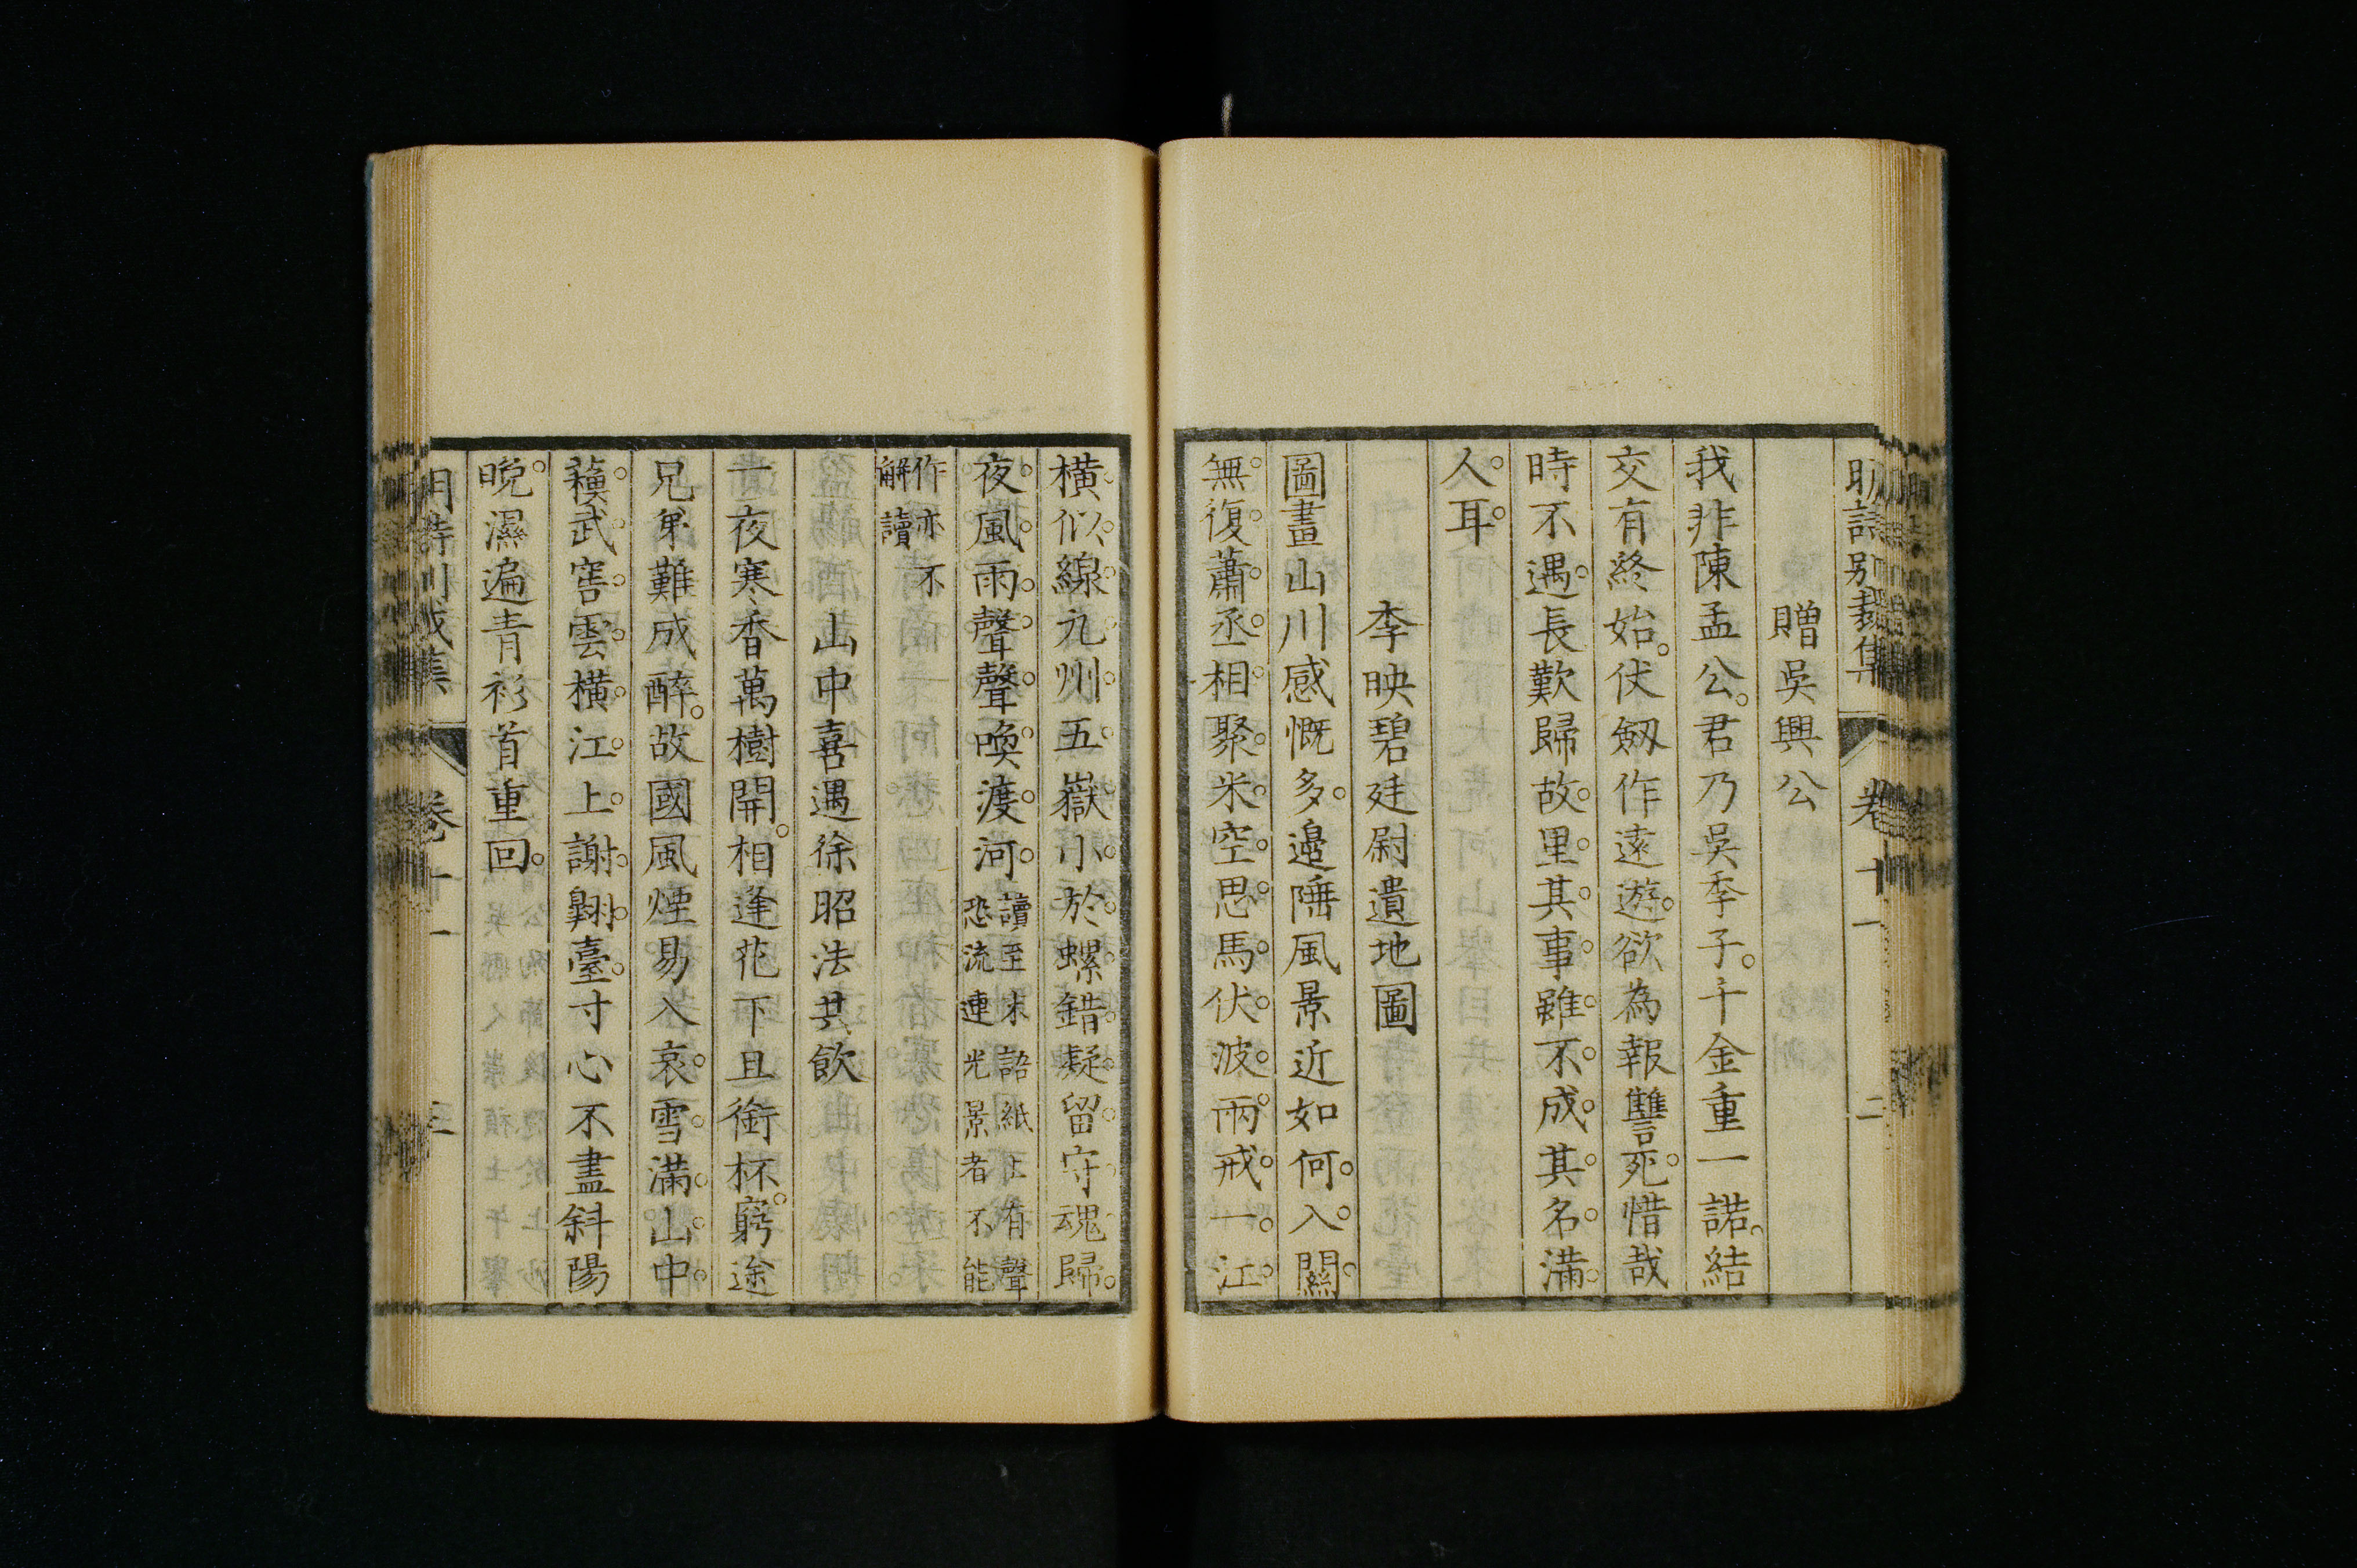 明詩別裁集 卷十一 二
贈吳興公
我非陳孟公。君乃吳季子。千金重一諾。結
交有終始。伏劒作遠遊。欲為報讐死。惜哉
時不遇。長歎歸故里。其事雖不成。其名滿
人耳。
李映碧廷尉遺地圖
圖畫山川感慨多。邉陲風景近如何。入關
無復蕭丞相。聚米空思馬伏波。兩戒一江
橫似線。九州五嶽小於螺。錯疑留守魂歸
夜。風雨聲聲喚渡河。讀至末語紙上有聲
恐流連光景者不能
作亦不
解讀
山中喜遇徐昭法共飲
一夜寒香萬樹開。相逢花下且銜杯。窮途
兄弟難成醉。故國風煙易入哀。雪滿山中
蘓武窖。雲橫江上謝翺臺。寸心不盡斜陽
晚。濕遍青衫首重回。
卷十一 三